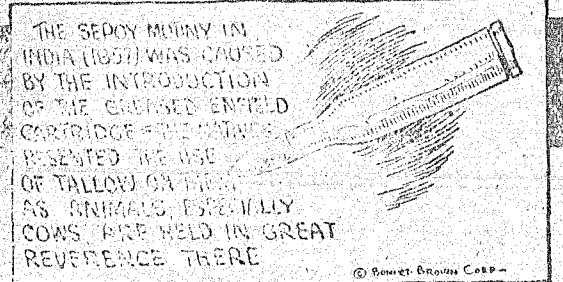 THE SEPOY MUTINY IN
INDIA (1857) WAS CAUSED
BY THE INTRODUCTION
OF THE GREASED ENFIELD
CARTRIDGE = THE NATIVES
RESENTED THE USE
OF TALLOW ON THEM
AS ANIMALS, ESPECIALLY
COWS ARE HELD IN GREAT
REVERENCE THERE
© BONNET-BROWN CORP-